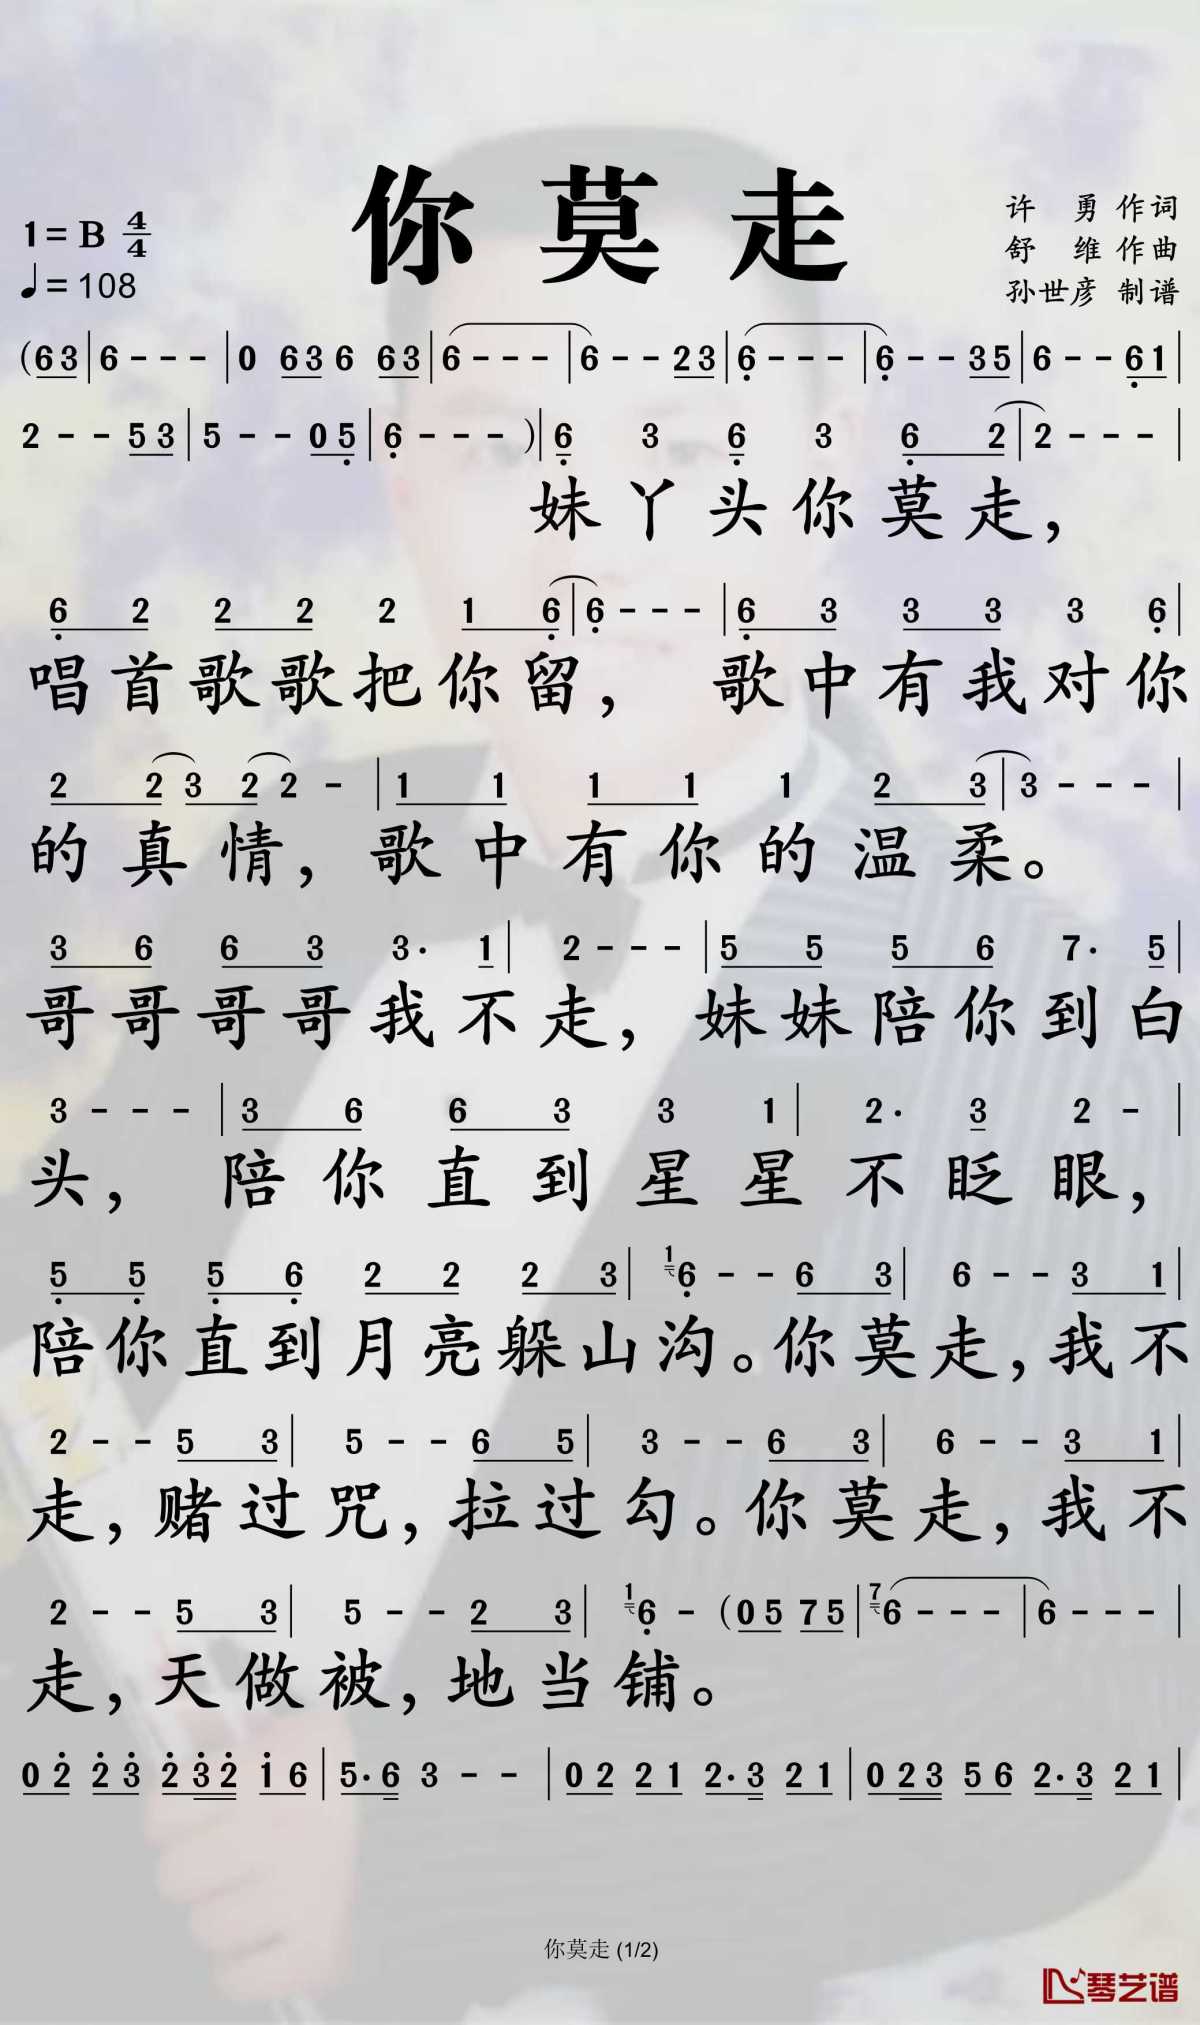 你莫走
1=B 4/4
♩=108
许 勇 作词
舒 维 作曲
孙世彦 制谱
(63|6---|0 63 6 63|6---|6--23|6̣---|6̣--35|6--6̣1|
2--53|5--05̣|6̣---)|6̣ 3 6̣ 3 6̣ 2|2---|
妹丫头你莫走，
6̣ 2 2 2 2 1 6̣|6̣---|6̣ 3 3 3 3 6̣
唱首歌歌把你留， 歌中有我对你
2 2 3 2 2 -|1 1 1 1 1 2 3|3---|
的真情，歌中有你的温柔。
3 6 6 3 3· 1|2---|5 5 5 6 7· 5
哥哥哥哥我不走，妹妹陪你到白
3---|3 6 6 3 3 1|2· 3 2 -|
头， 陪你直到星星不眨眼，
5̣ 5̣ 5̣ 6̣ 2 2 2 3|1 6̣--6 3|6--3 1|
陪你直到月亮躲山沟。你莫走，我不
2--5 3|5--6 5|3--6 3|6--3 1|
走，赌过咒，拉过勾。你莫走，我不
2--5 3|5--2 3|1 6̣-(05 75|7 6---|6---|
走，天做被，地当铺。
0 2̇ 2̇ 3̇ 2̇ 3̇ 2̇ 1̇ 6|5·6 3 - -|02 21 2·3 21|023 56 2·3 21|
你莫走 (1/2)
琴艺谱